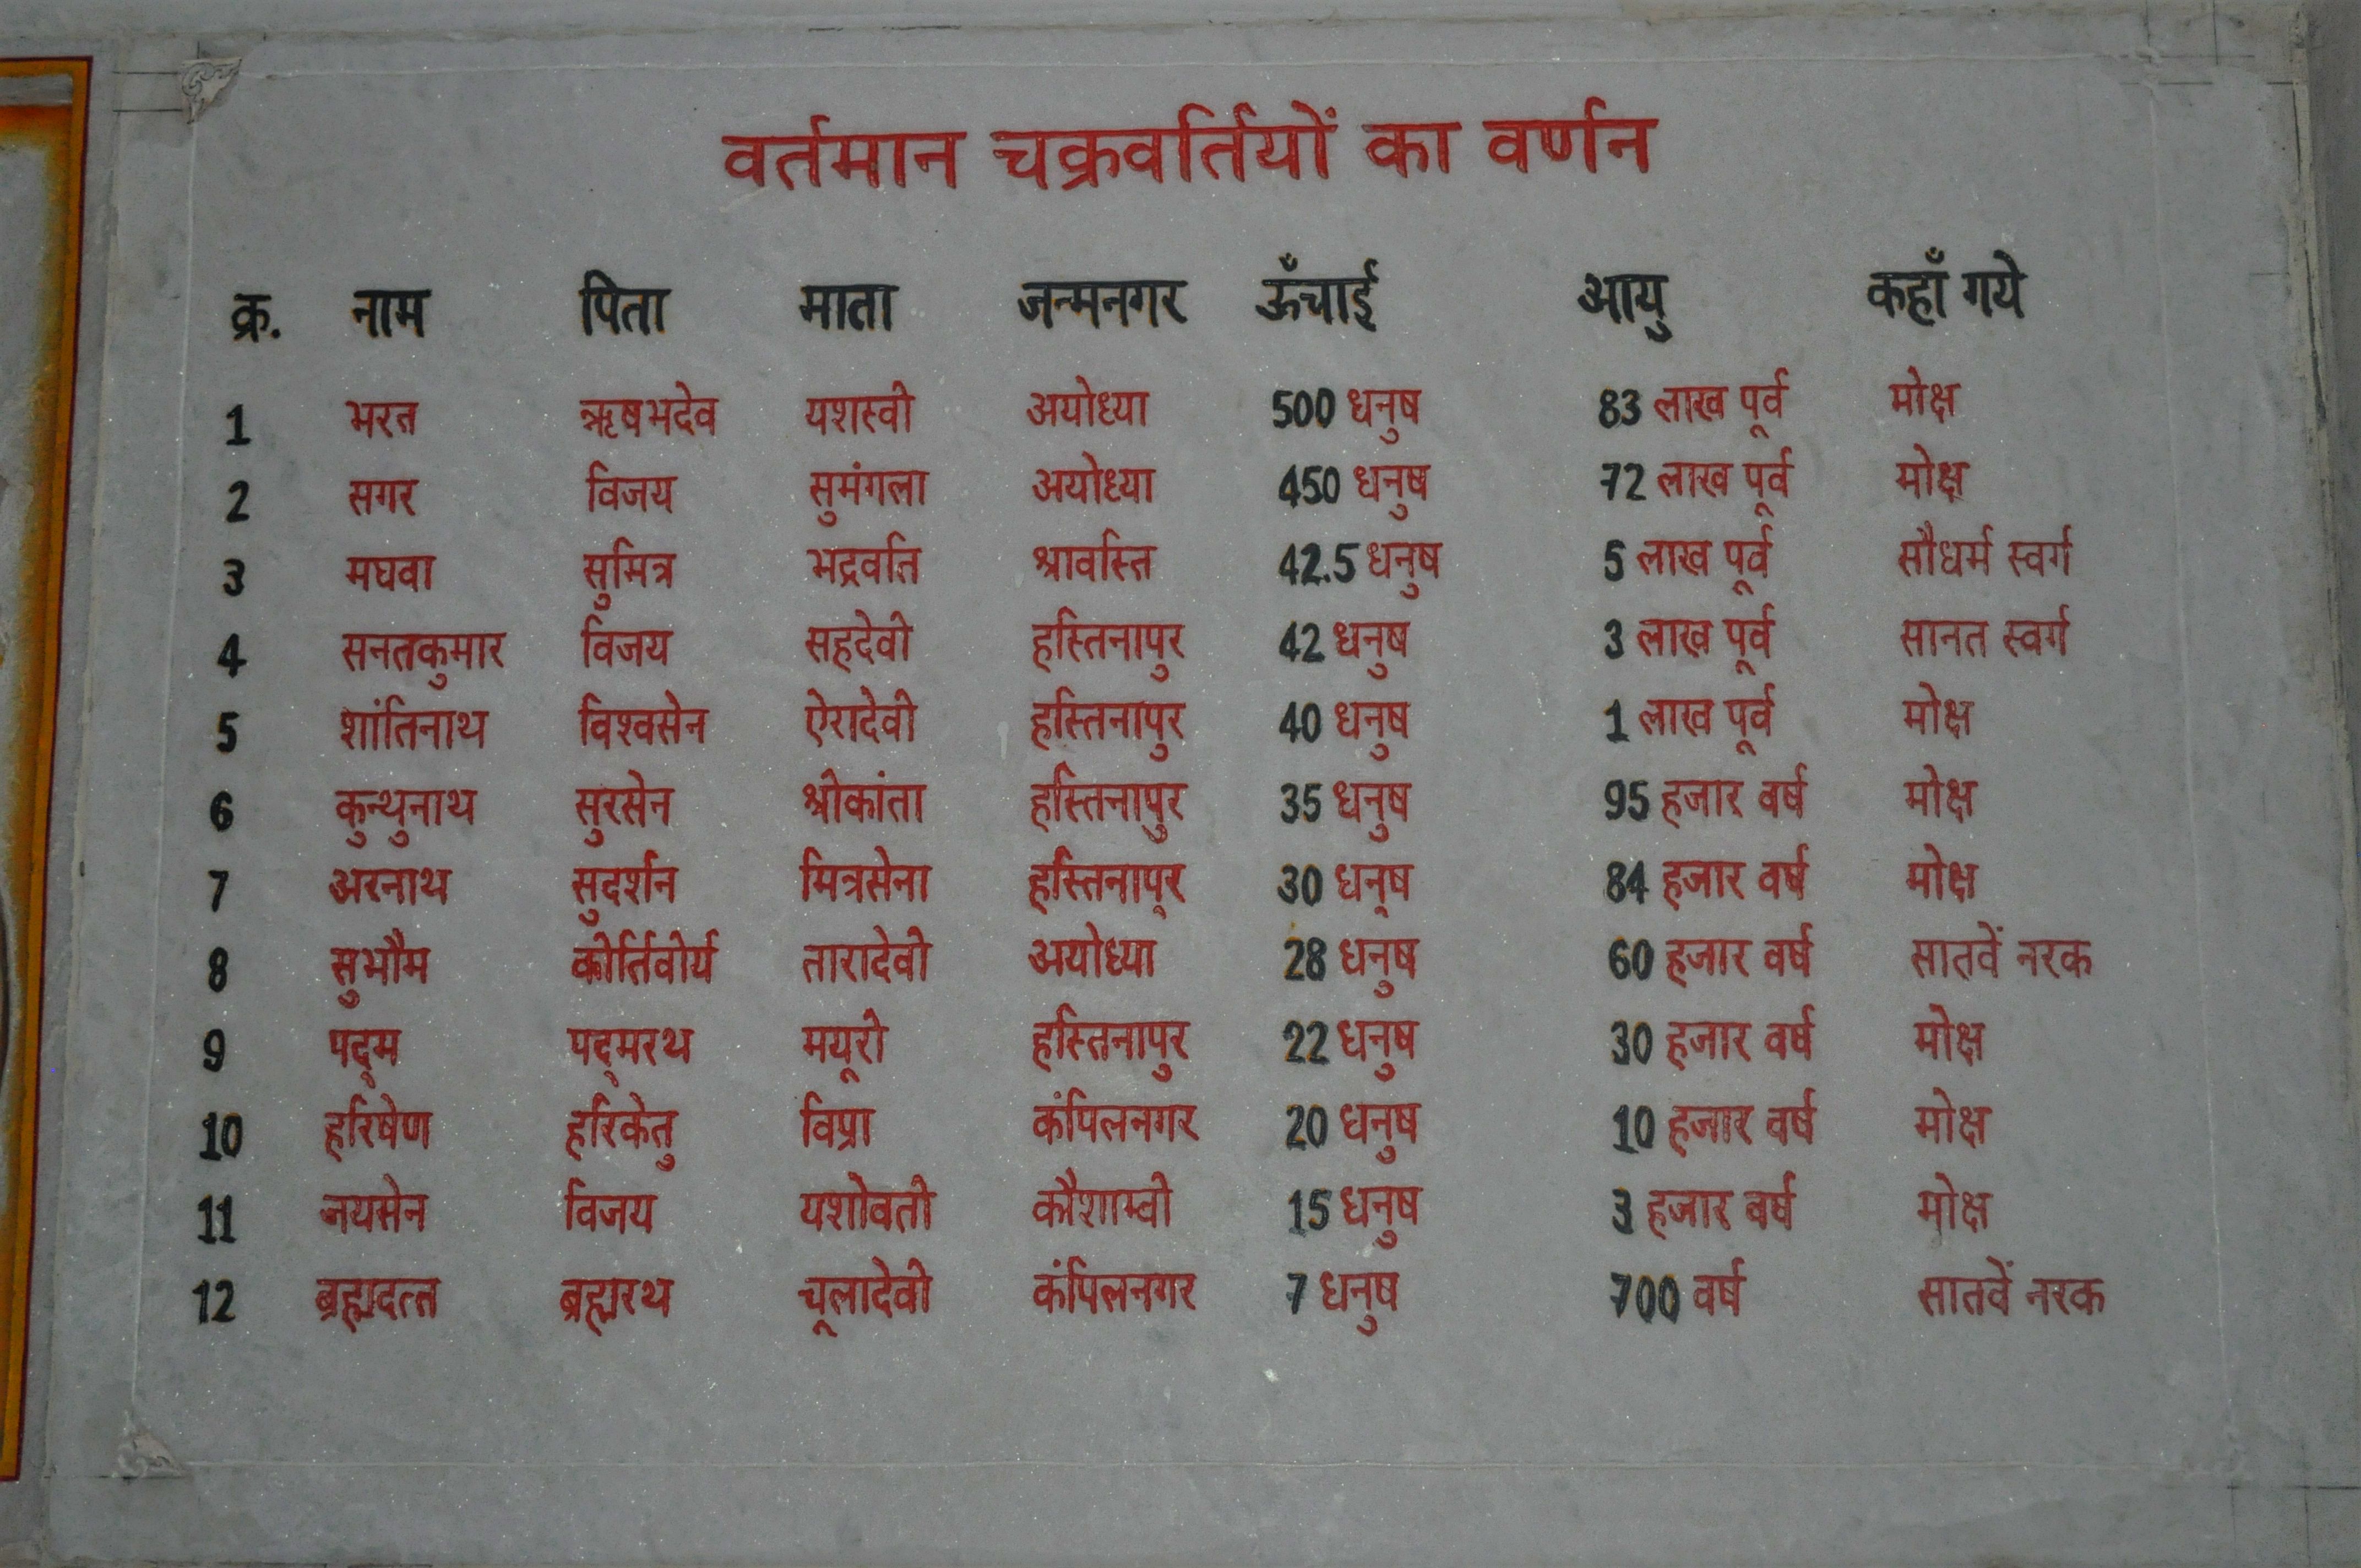 वर्तमान चक्रवर्तियों का वर्णन
क्र. नाम पिता माता जन्मनगर ऊँचाई आयु कहाँ गये
1 भरत ऋषभदेव यशस्वी अयोध्या 500 धनुष 83 लाख पूर्व मोक्ष
2 सगर विजय सुमंगला अयोध्या 450 धनुष 72 लाख पूर्व मोक्ष
3 मघवा सुमित्र भद्रवति श्रावस्ति 42.5 धनुष 5 लाख पूर्व सौधर्म स्वर्ग
4 सनतकुमार विजय सहदेवी हस्तिनापुर 42 धनुष 3 लाख पूर्व सानत स्वर्ग
5 शांतिनाथ विश्वसेन ऐरादेवी हस्तिनापुर 40 धनुष 1 लाख पूर्व मोक्ष
6 कुन्थुनाथ सुरसेन श्रीकांता हस्तिनापुर 35 धनुष 95 हजार वर्ष मोक्ष
7 अरनाथ सुदर्शन मित्रसेना हस्तिनापुर 30 धनुष 84 हजार वर्ष मोक्ष
8 सुभौम कीर्तिवीर्य तारादेवी अयोध्या 28 धनुष 60 हजार वर्ष सातवें नरक
9 पद्म पद्मरथ मयूरी हस्तिनापुर 22 धनुष 30 हजार वर्ष मोक्ष
10 हरिषेण हरिकेतु विप्रा कंपिलनगर 20 धनुष 10 हजार वर्ष मोक्ष
11 जयसेन विजय यशोवती कौशाम्वी 15 धनुष 3 हजार वर्ष मोक्ष
12 ब्रह्मदत्त ब्रह्मरथ चूलादेवी कंपिलनगर 7 धनुष 700 वर्ष सातवें नरक